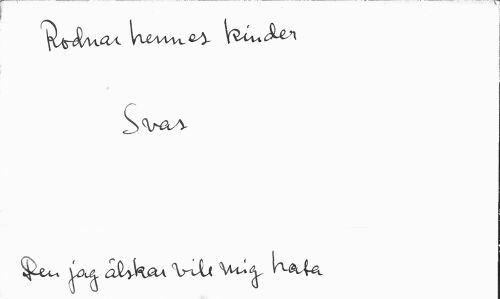 Rodnar hennes kinder
Svar
Den jag älskar vill mig hata